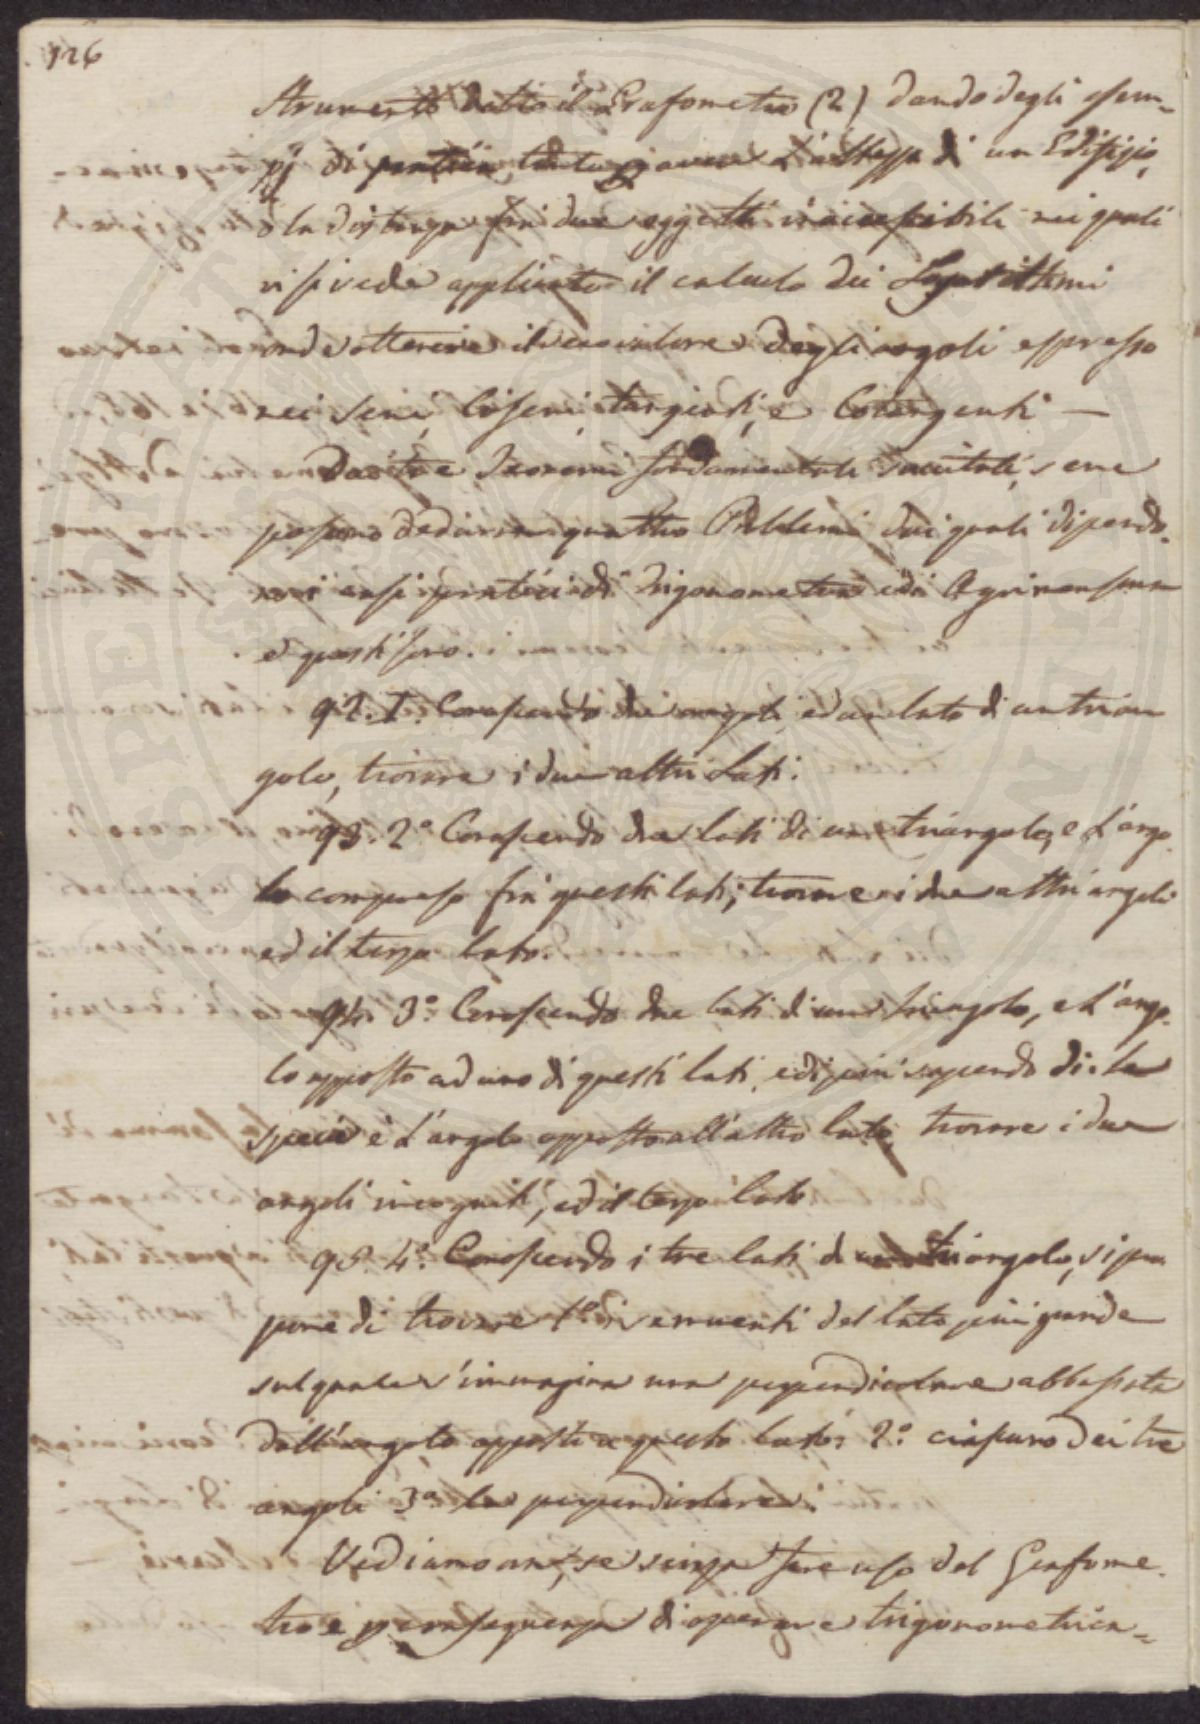 126
Strumento detto il Grafometro (2) dando degli esem=
pj di pratica tanto per avere l'altezza di un Edifizio,
o la distanza fra due oggetti inaccessibili nei quali
vi si vede applicato il calcolo dei Logarittimi
onde ottenere il valore degli angoli espresso
nei seni, Coseni, tangenti, e Cotangenti —
Dai tre Teoremi fondamentali succitati, se ne
possono dedurre quattro Problemi dai quali dipendo=
no i casi pratici di Trigonometria e di Agrimensura
e questi sono.
92. I.° Conoscendo due angoli, ed un lato di un trian
golo, trovare i due altri Lati.
93. 2.° Conoscendo due lati di un triangolo, e l'ango=
lo compreso fra questi lati, trovare i due altri angoli
ed il terzo lato.
94. 3.° Conoscendo due lati di un triangolo, e l'ango=
lo opposto ad uno di questi lati, e di più sapendo di che
specie è l'angolo opposto all'altro lato, trovare i due
angoli incogniti, ed il terzo lato
95. 4.° Conoscendo i tre lati di un triangolo, si pro
pone di trovare 1.° i segmenti del lato più grande
sul quale s'immagina una perpendicolare abbassata
dall'angolo opposto a questo lato; 2.° ciascuno dei tre
angoli 3.° la perpendicolare.
Vediamo ora, se senza fare uso del Grafome=
tro e per conseguenza di operare trigonometrica=